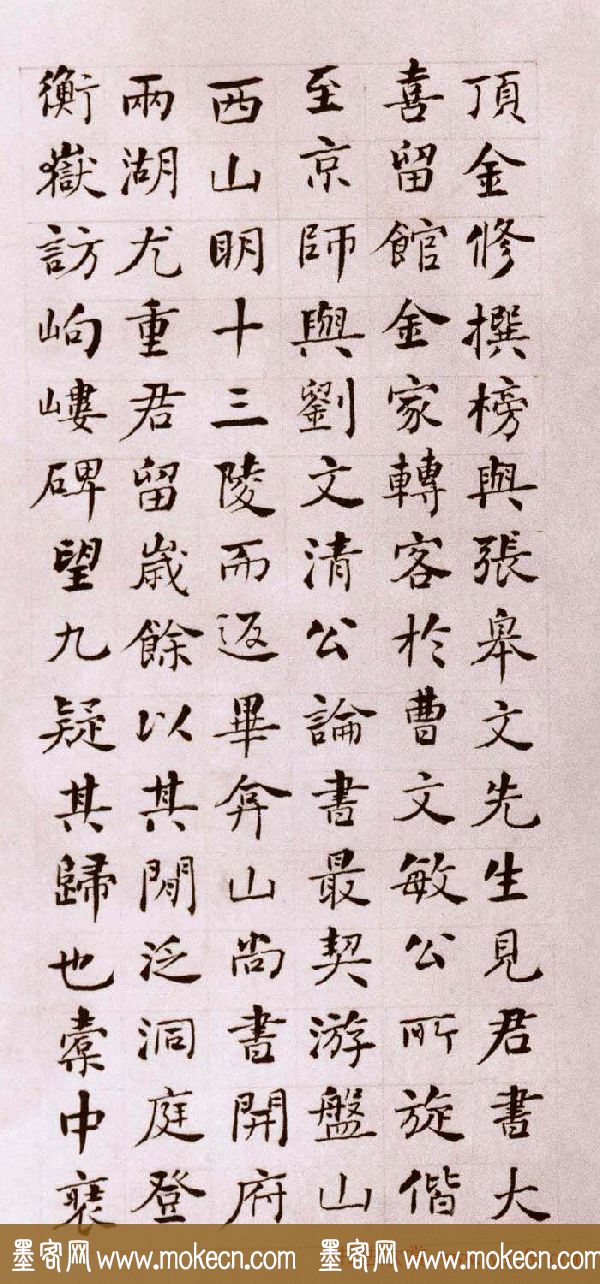 頂金修撰榜與張皋文先生見君書大
喜留館金家轉客於曹文敏公所旋偕
至京師與劉文清公論書最契游盤山
西山明十三陵而返畢弇山尚書開府
兩湖尤重君留歲餘以其閒泛洞庭登
衡嶽訪岣嶁碑望九疑其歸也橐中裒
墨客网 www.mokecn.com 墨客网 www.mokecn.com